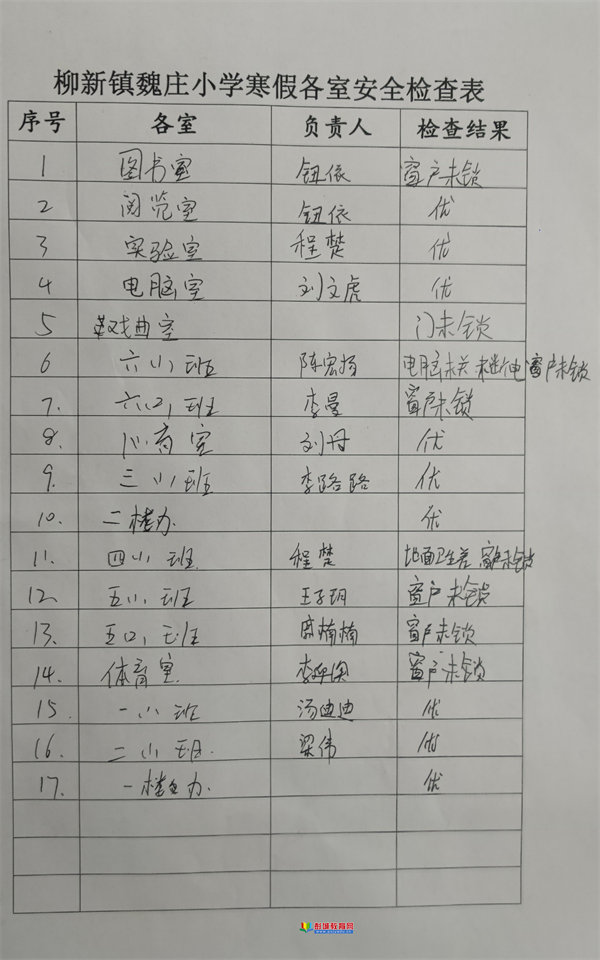 柳新镇魏庄小学寒假各室安全检查表
序号 各室 负责人 检查结果
1 图书室 钮依 窗户未锁
2 阅览室 钮依 优
3 实验室 程楚 优
4 电脑室 刘文虎 优
5 戏曲室 门未锁
6 六(1)班 陈宏扬 电脑未关 未断电 窗户未锁
7. 六(2)班 李曼 窗户未锁
8. 心育室 刘丹 优
9. 三(1)班 李路路 优
10. 二楼办 优
11. 四(1)班 程楚 地面卫生差 窗户未锁
12. 五(1)班 王子玥 窗户未锁
13. 五(2)班 楠楠 窗户未锁
14. 体育室 李 窗户未锁
15. 一(1)班 汤迪迪 优
16. 二(1)班. 梁伟 优
17. 一楼办. 优
彭城教育网